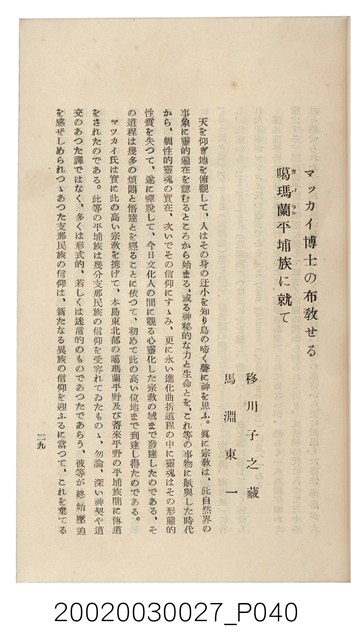 マツカイ博士の布教せる
噶瑪蘭平埔族に就て
カバラン
移川子之藏
馬淵東一
天を仰ぎ地を俯觀して、人はその身の迂小を知り鳥の啼く聲に神を思ふ。眞に宗教は、此自然界の
事象に靈的遍在を認むるところから始まる、或る神秘的な力と生命とを、これ等の事物に賦與した時代
から、個性的靈魂の實在、次いでその信仰にすゝみ、更に永い進化曲折道程の中に靈魂はその形態的
性質を失つて、遂に蟬脫して、今日文化人の間に觀る心靈化した宗教の域まで發達したのである、そ
の道程は幾多の煩悶と悟達とを經ることに依つて、初めて此の高い位地まで到達し得たのである。
マツカイ氏は實に此の高い宗教を携げて、本島東北部の噶瑪蘭平野及び奇萊平野の平埔族間に傳道
をされたのである。此等の平埔族は幾分支那民族の信仰を受容れてゐたものゝ、勿論、深い神契や道
交のあつた譯ではなく、多くは形式的、若しくは迷信的のものであつたであらう、彼等が終始壓迫
を感ぜしめられつゝあつた支那民族の信仰は、新たなる異族の信仰を迎ふるに當つて、これを棄てる
二九
20020030027_P040